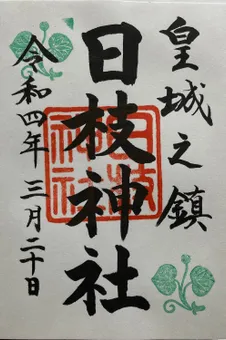 皇城之鎮
日枝神社
令和四年三月二十日
日枝神社